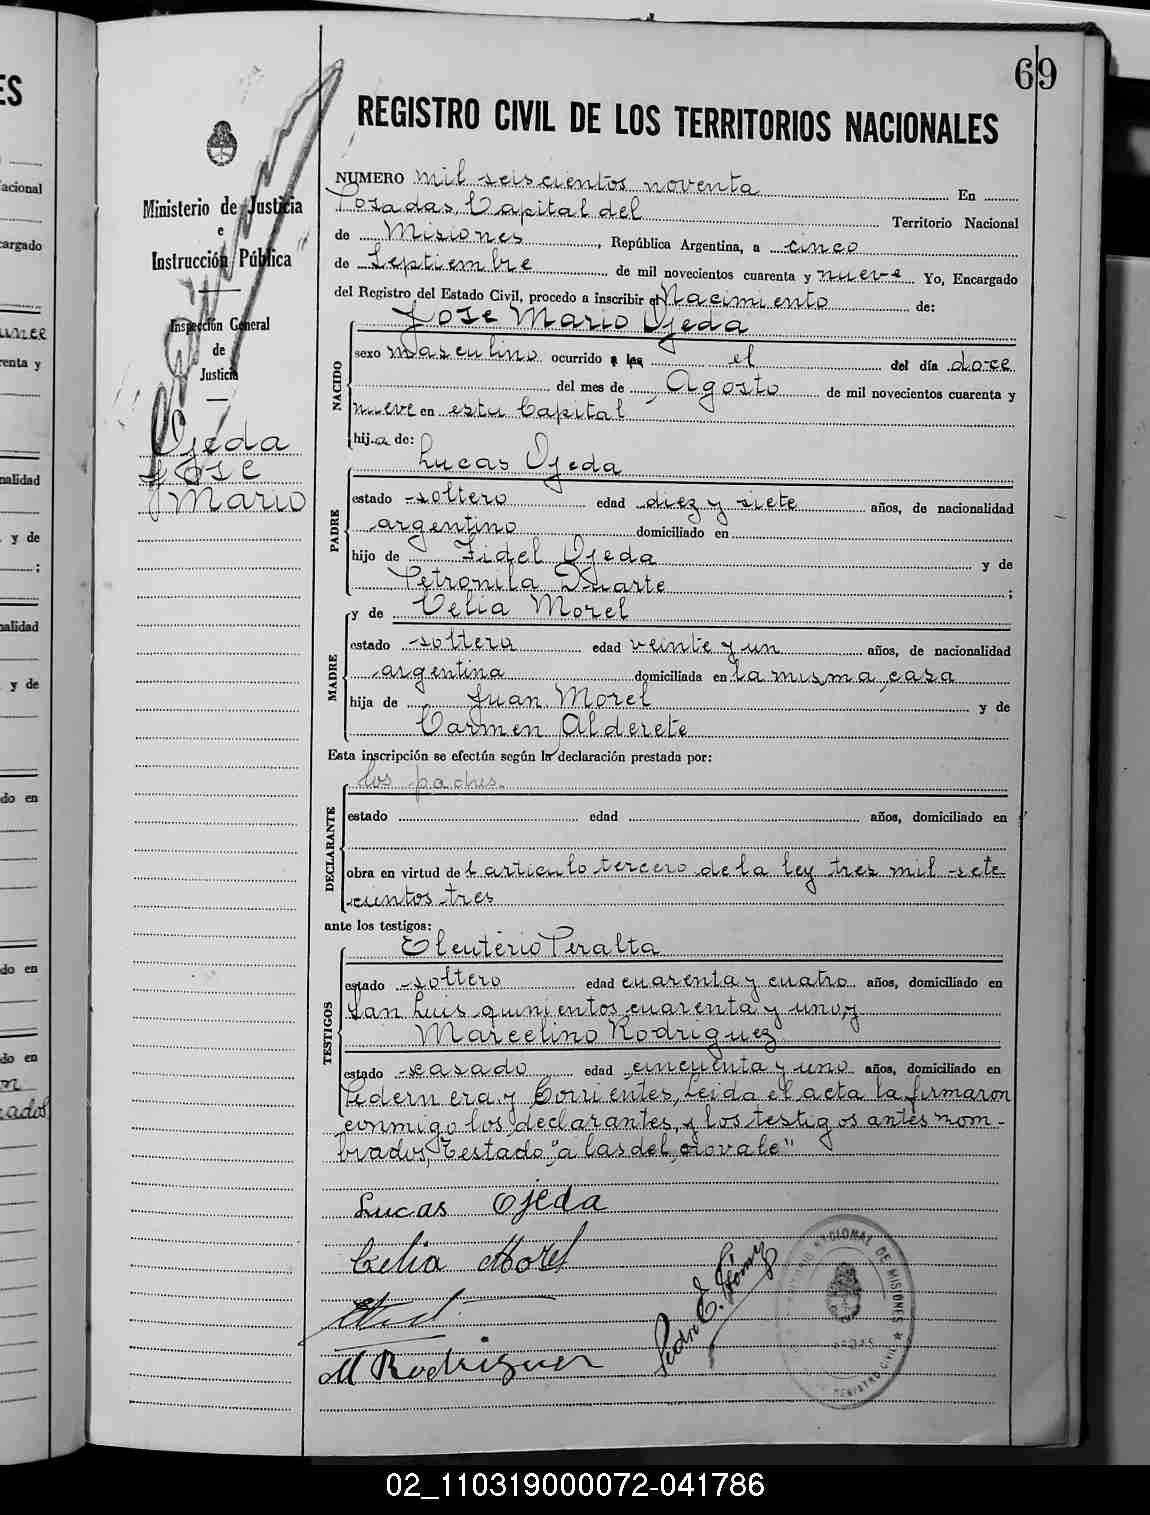 69
REGISTRO CIVIL DE LOS TERRITORIOS NACIONALES
Ministerio de Justicia
e
Instrucción Pública
Inspección General
de
Justicia
Ojeda
José
Mario
NUMERO mil seiscientos noventa En
Posadas, Capital del Territorio Nacional
de Misiones, República Argentina, a cinco
de Septiembre de mil novecientos cuarenta y nueve Yo, Encargado
del Registro del Estado Civil, procedo a inscribir el Nacimiento de:
José Mario Ojeda
NACIDO
sexo masculino ocurrido a las el del día doce
del mes de Agosto de mil novecientos cuarenta y
nueve en esta Capital
hijo de:
Lucas Ojeda
PADRE
estado soltero edad diez y siete años, de nacionalidad
argentino domiciliado en
hijo de Fidel Ojeda y de
Petronila Duarte ;
y de Celia Morel
MADRE
estado soltera edad veinte y un años, de nacionalidad
argentina domiciliada en la misma casa
hija de Juan Morel y de
Carmen Alderete
Esta inscripción se efectúa según la declaración prestada por:
los padres.
DECLARANTE
estado edad años, domiciliado en
obra en virtud del articulo tercero de la ley tres mil sete-
cientos tres
ante los testigos:
Eleuterio Peralta
TESTIGOS
estado soltero edad cuarenta y cuatro años, domiciliado en
San Luis quinientos cuarenta y uno, y
Marcelino Rodriguez
estado casado edad cincuenta y uno años, domiciliado en
Pedernera y Corrientes, Leida el acta la firmaron
conmigo los declarantes, y los testigos antes nom-
brados, Testado "a las del, no vale"
Lucas Ojeda
Celia Morel
M Rodriguez
Pedro E.
NACIONAL DE MISIONES
REGISTRO CIVIL
02_110319000072-041786
ES
acional
argado
enta y
nalidad
y de
;
nalidad
y de
do en
do en
do en